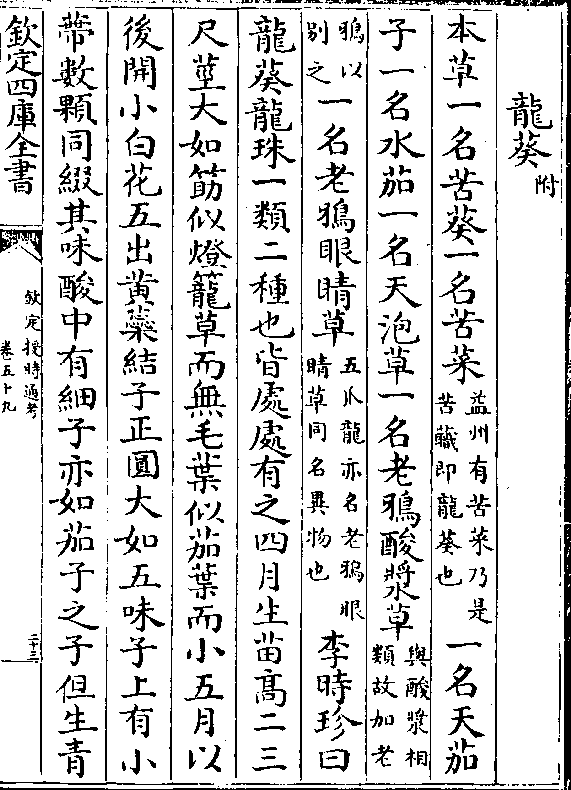 龍葵附
本草一名苦葵一名苦菜益州有苦菜乃是苦蘵即龍葵也一名天茄
子一名水茄一名天泡草一名老鴉酸漿草與酸漿相類故加老
鴉以别之一名老鴉眼睛草五爪龍亦名老鴉眼睛草同名異物也李時珍曰
龍葵龍珠一類二種也皆處處有之四月生苗高二三
尺莖大如筯似燈籠草而無毛葉似茄葉而小五月以
後開小白花五出黄蘂結子正圓大如五味子上有小
蔕數顆同綴其味酸中有細子亦如茄子之子但生青
欽定四庫全書
欽定授時通考
卷五十九
二十三